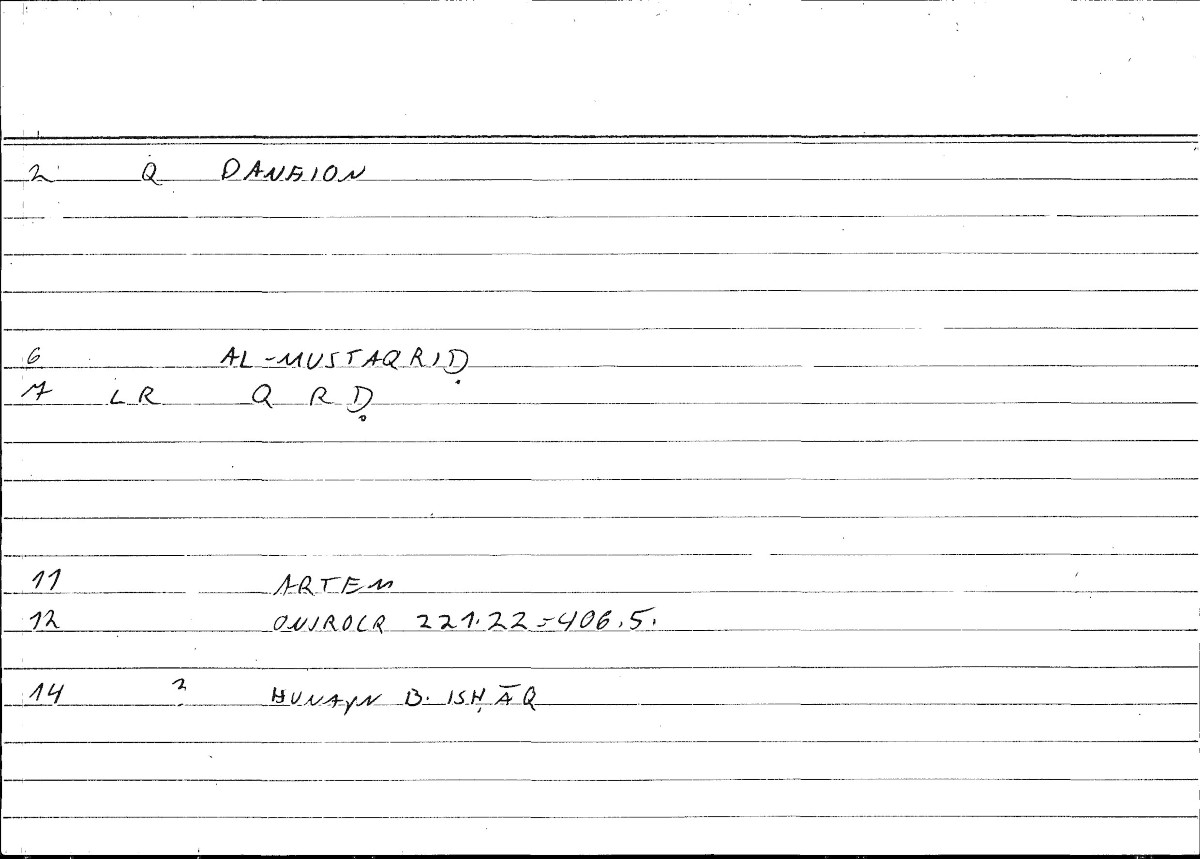 2 Q DANEION
6 AL-MUSTAQRIḌ
7 LR Q R Ḍ
11 ARTEM
12 ONIROCR 221.22=406.5.
14 ? ḤUNAYN B. ISḤĀQ